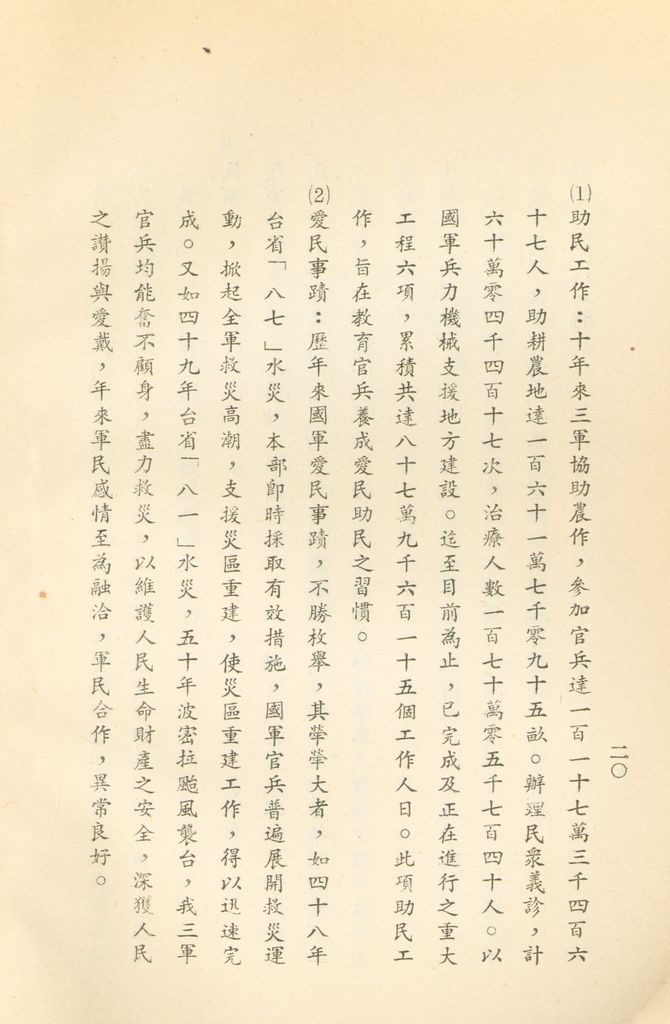 二〇
⑴助民工作：十年來三軍協助農作，參加官兵達一百一十七萬三千四百六
十七人，助耕農地達一百六十一萬七千零九十五畝。辦理民衆義診，計
六十萬零四千四百十七次，治療人數一百七十萬零五千七百四十人。以
國軍兵力機械支援地方建設。迄至目前為止，已完成及正在進行之重大
工程六項，累積共達八十七萬九千六百一十五個工作人日。此項助民工
作，旨在教育官兵養成愛民助民之習慣。
⑵愛民事蹟：歷年來國軍愛民事蹟，不勝枚舉，其犖犖大者，如四十八年
台省「八七」水災，本部卽時採取有效措施，國軍官兵普遍展開救災運
動，掀起全軍救災高潮，支援災區重建，使災區重建工作，得以迅速完
成。又如四十九年台省「八一」水災，五十年波密拉颱風襲台，我三軍
官兵均能奮不顧身，盡力救災，以維護人民生命財產之安全，深獲人民
之讚揚與愛戴，年來軍民感情至為融洽，軍民合作，異常良好。